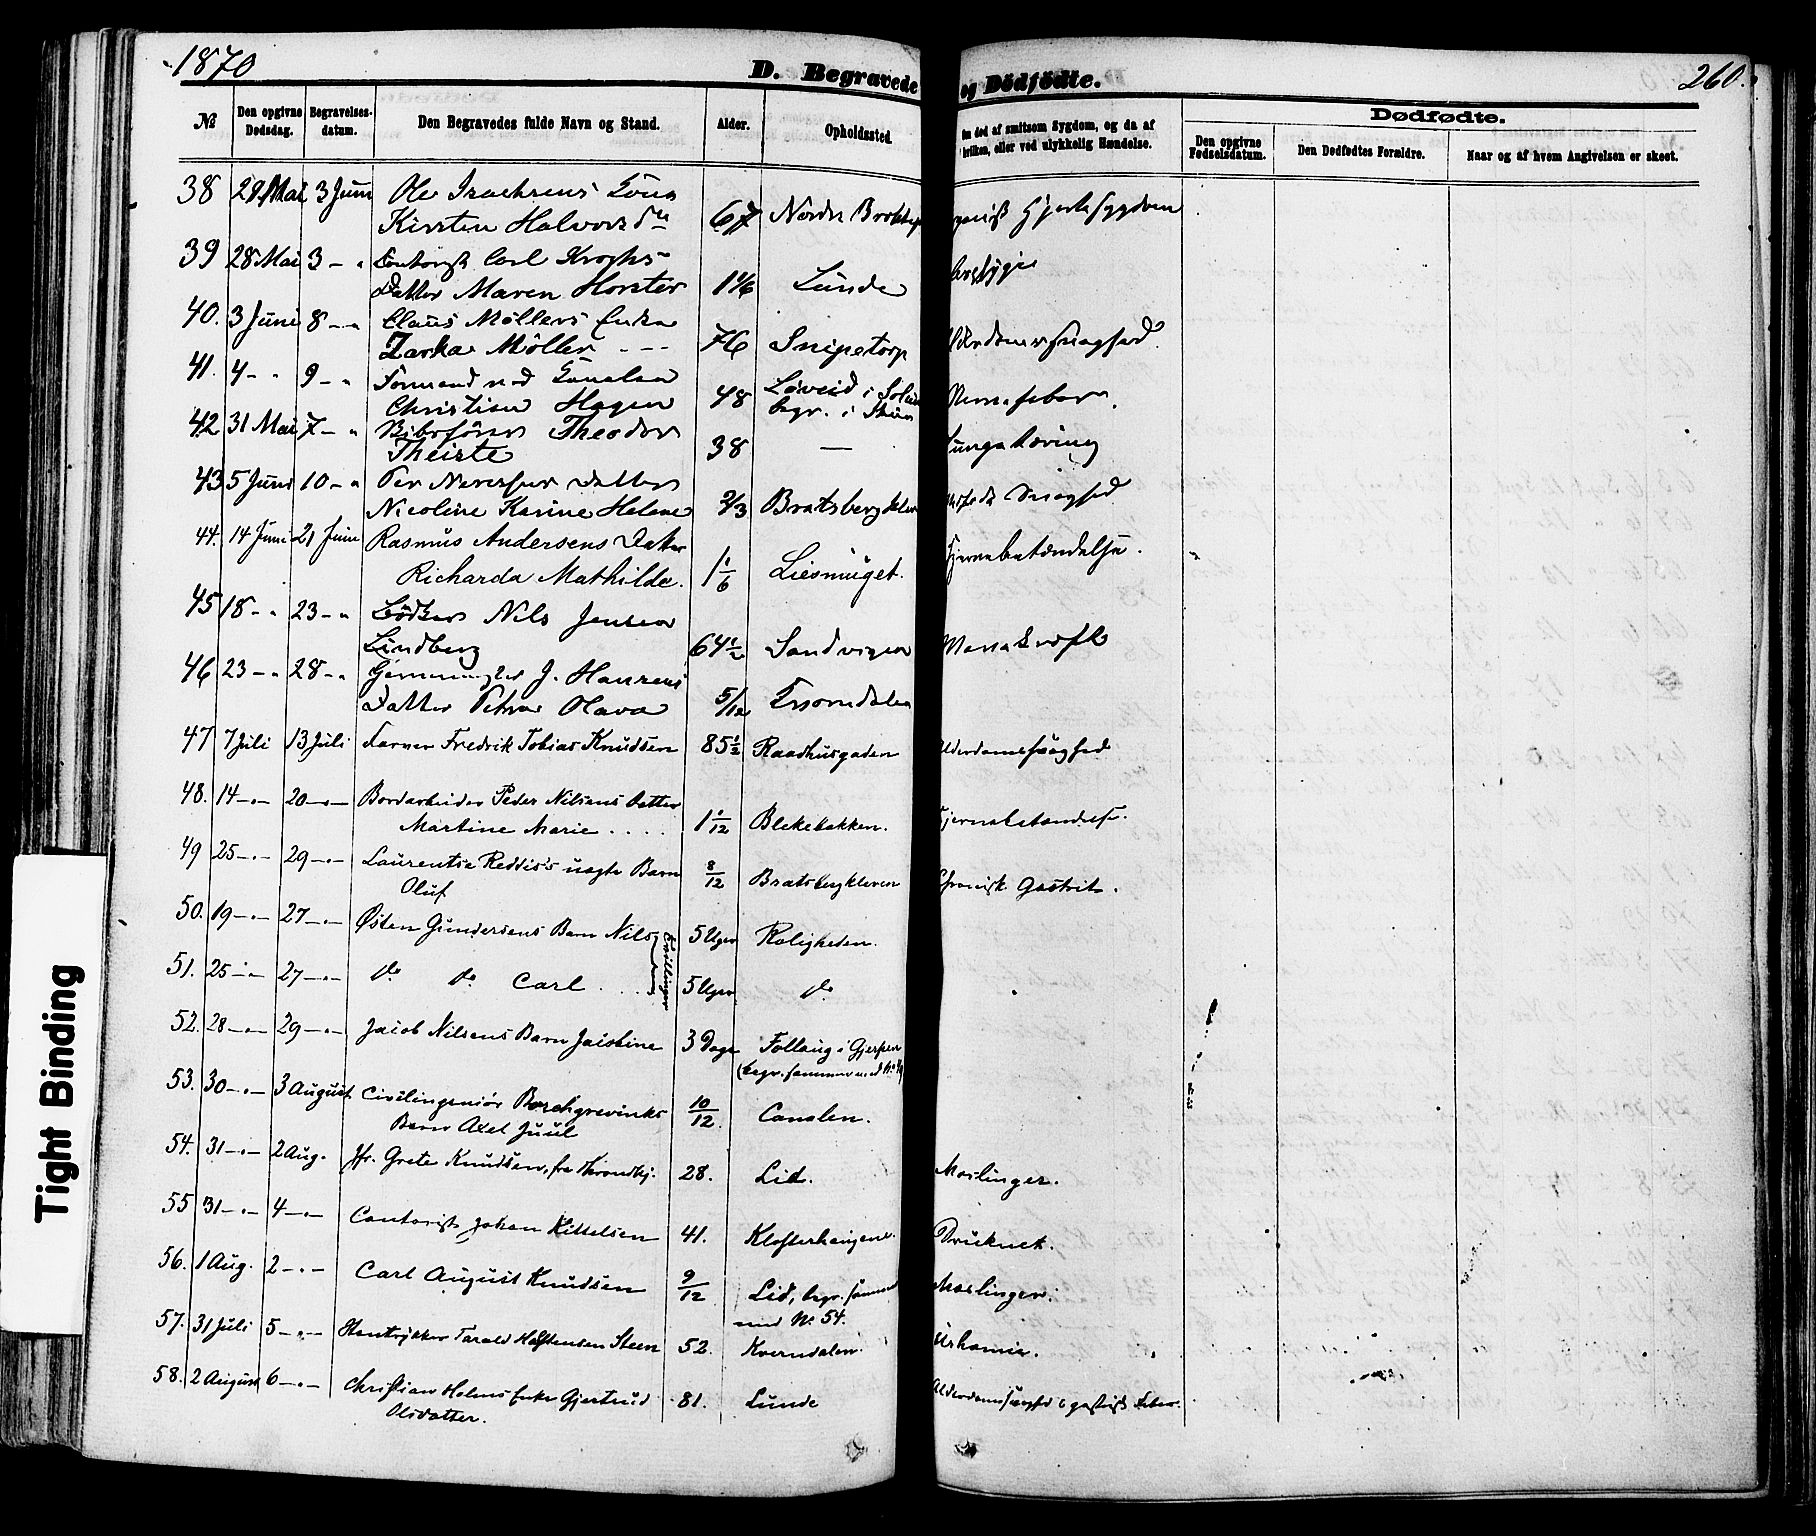 1870
D. Begravede og Dödfödte.
260.
№
Den opgivne Dødsdag.
Begravelses-datum.
Den Begravedes fulde Navn og Stand.
Alder.
Opholdssted
død af smitsom Sygdom, og da af
hvilken, eller ved ulykkelig Hændelse.
Dødfødte.
Den opgivne Fødselsdatum.
Den Dødfødtes Forældre.
Naar og af hvem Angivelsen er skeet.
38 28 Mai 3 Juni Ole Isachsens
Kirsten Halvorsd 67 Nordre
39 28 Mai 3 - " Contorist Carl Kroghs
Datter Maren Horster 1 1/6 Lunde
40. 3 Juni 8 - " Claus Møllers Enke
Zarka Möller - - - 76 Snipetorp Alderdomssvaghed.
41. 4 - " 9 - "
Christian Hagen 48 Løveid i Solum
begr. i Skien
42 31 Mai 7 - " Theodor
Theiste 38 — Lungetæring
43 5 Juni 10 - " Per Datter
Nicoline Karine Helene 2/3 Bratsbergkleven Svaghed
44. 14 Juni 21 Juni Rasmus Andersens Datter
Richarda Mathilde. 1 1/6 Liesmüget. Hjernebetændelse.
45 18 - " 23 - " Bödker Nils Jensen
Lindberg 64 1/2 Sandvigen
46 23 - " 28 - " J. Hansens
Datter Petra Olava 5/12
47 7 Juli 13 Juli Farver Fredrik Tobias Knudsen 85 1/2 Raadhusgaden Alderdomssvaghed
48. 14 - " - 20 - " - Bordarbeider Peder Nilsens Datter
Martine Marie . . . . 1 1/12 Blekebakken. Hjernebetændelse.
49 25 - " - 29 - " - Laurentse Reddis's uægte Barn
Oluf 8/12 Bratsbergkleven Chronisk Gastrit.
50. 19 - " - 27 - " - Østen Gundersens Barn Nils 5 Uger Roligheden.
Tvillinger
51. 25 - " - 27 - " - do do Carl . . . 5 Uger do
52. 28 - " - 29 - " - Jacob Nilsens Barn 3 Dage Follaug i Gjerpen
(begr. sammen med
53. 30 - " - 3 August Civilingeniör Borchgrevinks
Barn Axel Juul 10/12 Canalen.
54. 31 - " - 2 Aug. Jfr. Grete Knudsen, fra Throndhj. 28. Lid. Mæslinger.
55 31 - " - 4 - " - Contorist Johan Kittelsen 41. Klosterhaugene. Druknet.
56. 1 Aug. 2 - " - Carl August Knudsen 9/12 Lid, begr. sammen
med No 54. Mæslinger.
57. 31 Juli 5 - " - Tarald Steen 52. Kverndalen.
58. 2 August 6 - " - Christian Holms Enke Gjertrud
Olsdatter. 81. Lunde Alderdomssvaghed & gastrisk Feber.
Tight Binding